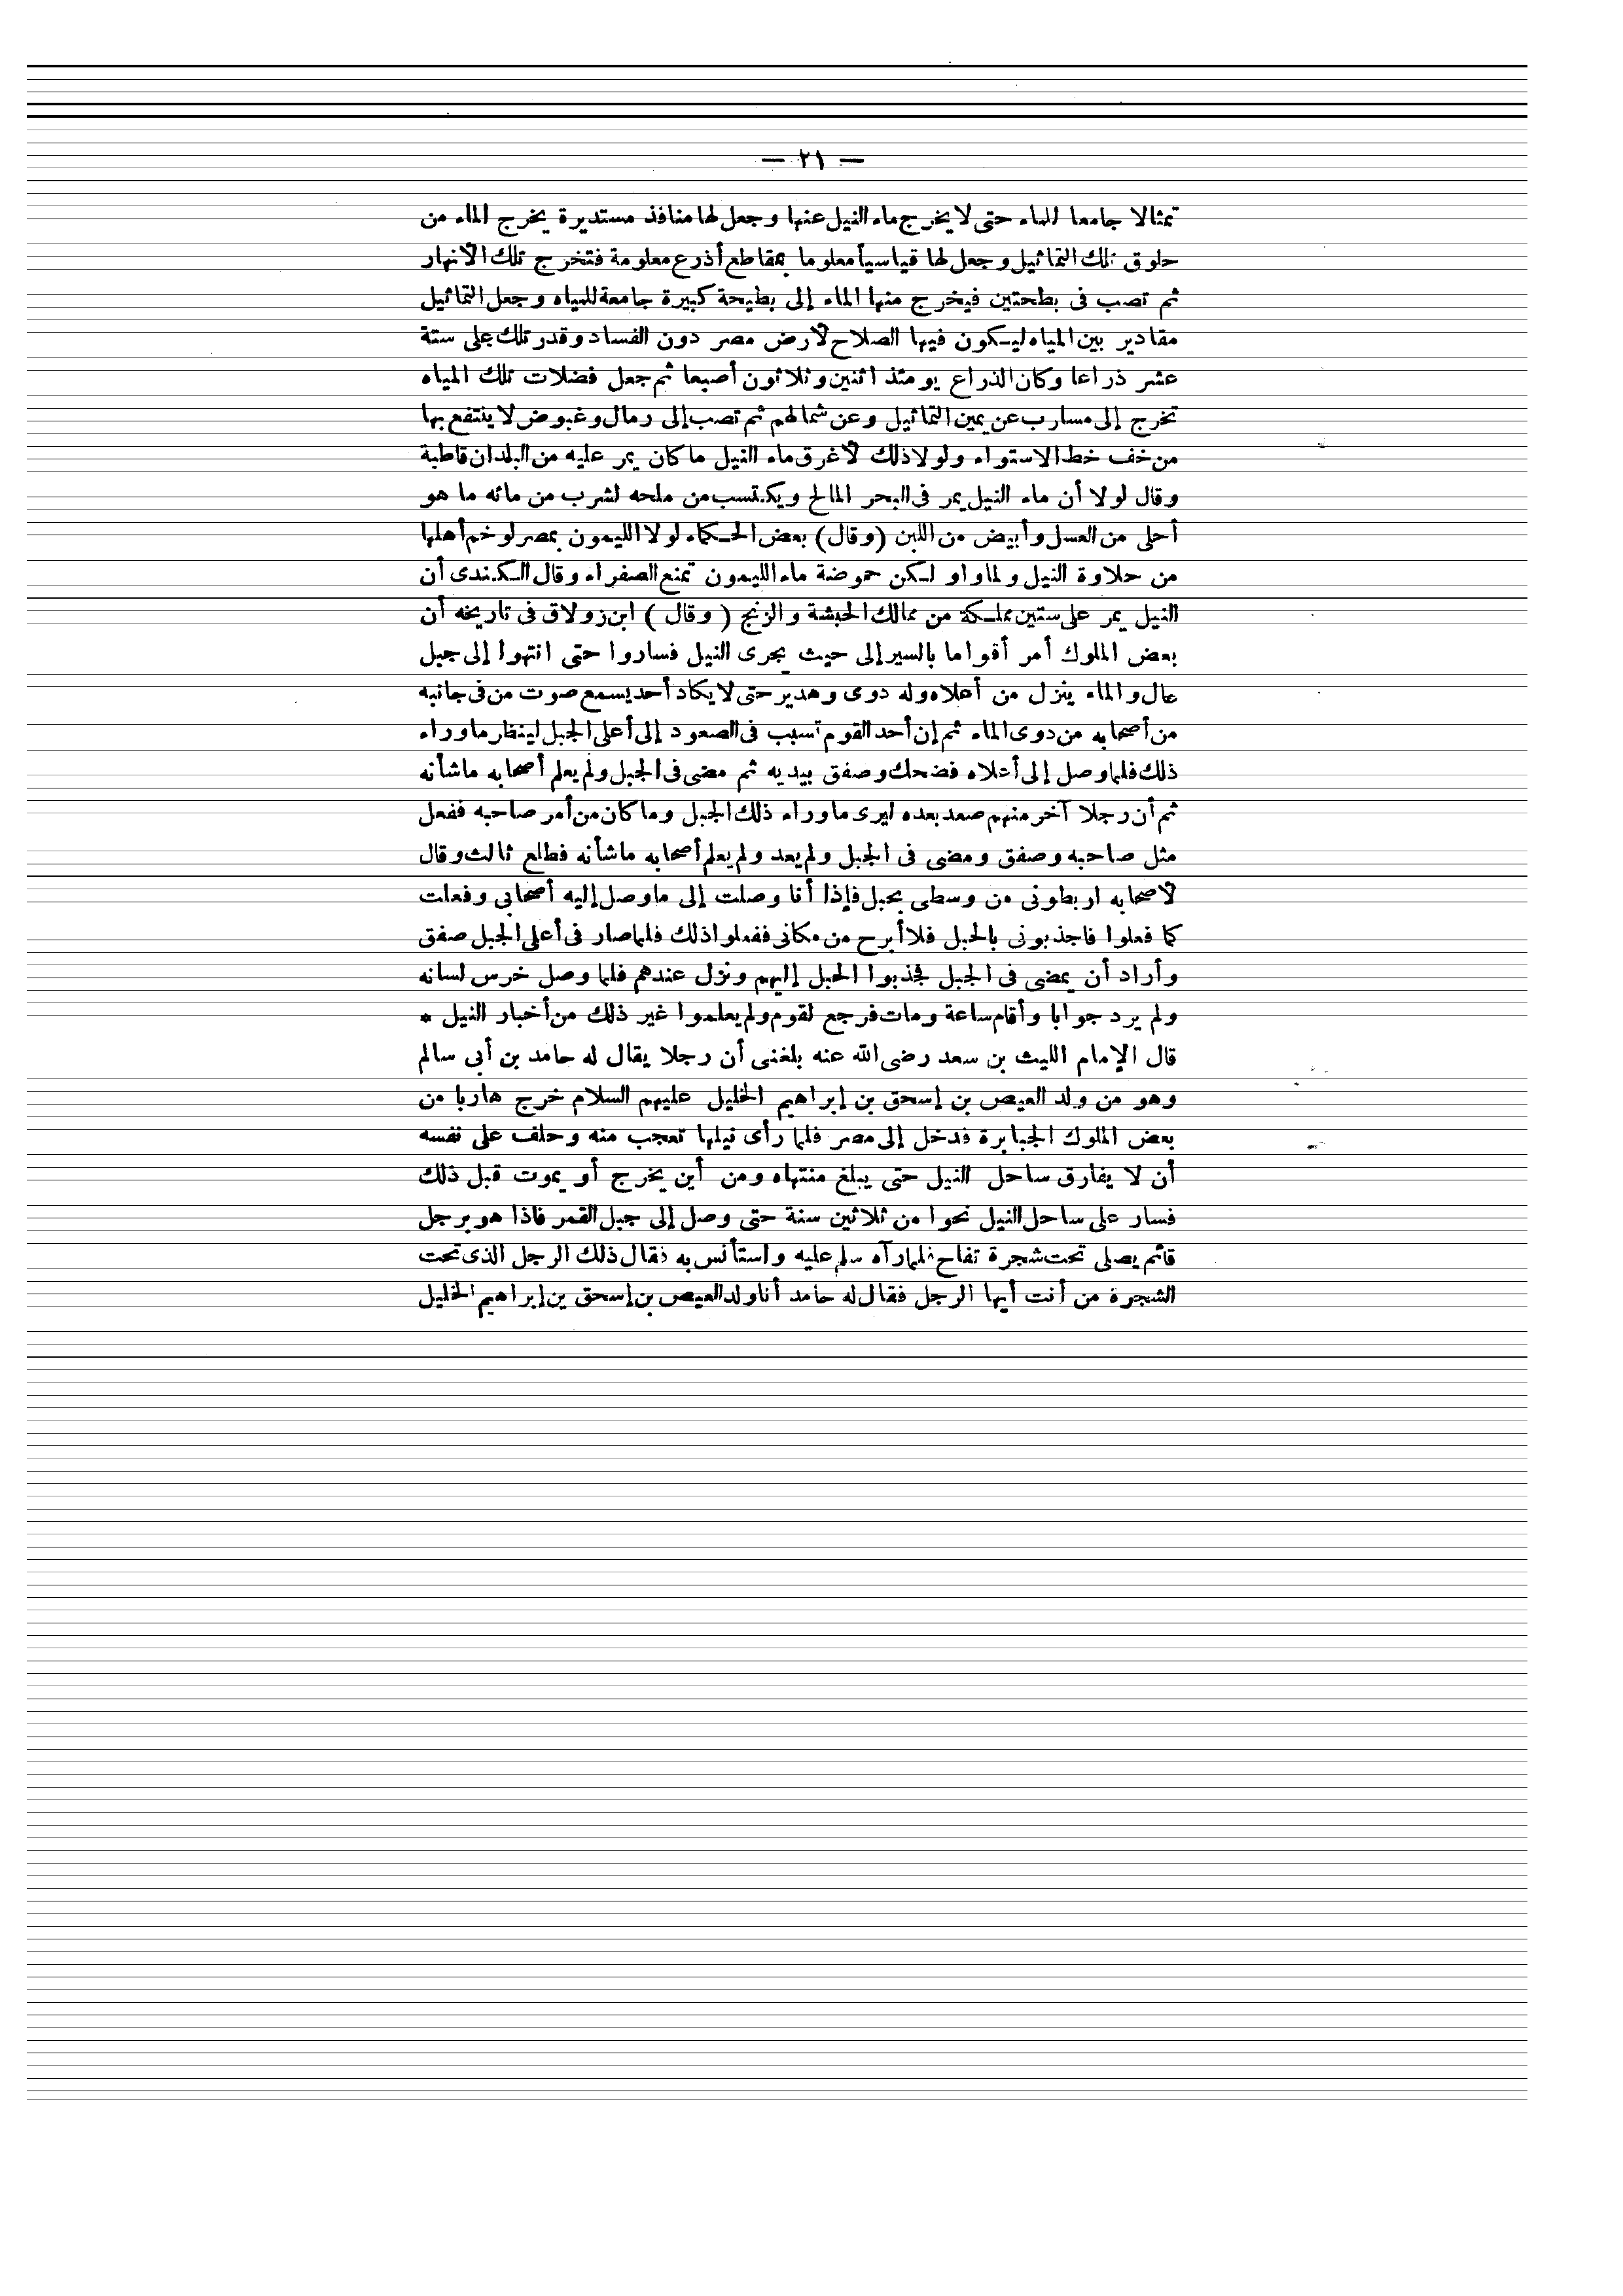 — ٢١ —
تمثالا جامعا للماء حتى لا يخرج ماء النيل عنها وجعل لها منافذ مستديرة يخرج الماء من
حلوق تلك التماثيل وجعل لها قياسياً معلوما بمقاطع أذرع معلومة فتخرج تلك الأنهار
ثم تصب فى بطحتين فيخرج منها الماء إلى بطيحة كبيرة جامعة للمياه وجعل التماثيل
مقادير بين المياه ليكون فيها الصلاح لأرض مصر دون الفساد وقدر تلك على ستة
عشر ذراعا وكان الذراع يومئذ اثنين وثلاثون أصبعا ثم جعل فضلات تلك المياه
تخرج إلى مسارب عن يمين التماثيل وعن شمالهم ثم تصب إلى رمال وغبوض لا ينتفع بها
من خف خط الاستواء ولولا ذلك لأغرق ماء النيل ما كان يمر عليه من البلدان قاطبة
وقال لولا أن ماء النيل يمر فى البحر المالح ويكتسب من ملحه لشرب من مائه ما هو
أحلى من العسل وأبيض من اللبن (وقال) بعض الحكماء لولا الليمون بمصر لوخم أهلها
من حلاوة النيل ولماواو لكن حموضة ماء الليمون تمنع الصفراء وقال الكندى أن
النيل يمر على ستين مملكة من ممالك الحبشة والزنج (وقال) ابن زولاق فى تاريخه أن
بعض الملوك أمر أقواما بالسير إلى حيث يجرى النيل فساروا حتى انتهوا إلى جبل
عال والماء ينزل من أعلاه وله دوى وهدير حتى لا يكاد أحد يسمع صوت من فى جانبه
من أصحابه من دوى الماء ثم إن أحد القوم تسبب فى الصعود إلى أعلى الجبل لينظر ما وراء
ذلك فلما وصل إلى أعلاه فضحك وصفق بيديه ثم مضى فى الجبل ولم يعلم أصحابه ما شأنه
ثم أن رجلا آخر منهم صعد بعده ليرى ما وراء ذلك الجبل وما كان من أمر صاحبه ففعل
مثل صاحبه وصفق ومضى فى الجبل ولم يعد ولم يعلم أصحابه ما شأنه فطلع ثالث وقال
لأصحابه اربطونى من وسطى بحبل فإذا أنا وصلت إلى ما وصل إليه أصحابى وفعلت
كما فعلوا فاجذبونى بالحبل فلا أبرح من مكانى ففعلوا ذلك فلما صار فى أعلى الجبل صفق
وأراد أن يمضى فى الجبل فجذبوا الحبل إليهم ونزل عندهم فلما وصل خرس لسانه
ولم يرد جوابا وأقام ساعة ومات فرجع لقوم ولم يعلموا غير ذلك من أخبار النيل *
قال الإمام الليث بن سعد رضى الله عنه بلغنى أن رجلا يقال له حامد بن أبى سالم
وهو من ولد العيص بن إسحق بن إبراهيم الخليل عليهم السلام خرج هاربا من
بعض الملوك الجبابرة فدخل إلى مصر فلما رأى نيلها تعجب منه وحلف على نفسه
أن لا يفارق ساحل النيل حتى يبلغ منتهاه ومن أين يخرج أو يموت قبل ذلك
فسار على ساحل النيل نحوا من ثلاثين سنة حتى وصل إلى جبل القمر فاذا هو برجل
قائم يصلى تحت شجرة تفاح فلما رآه سلم عليه واستأنس به فقال ذلك الرجل الذى تحت
الشجرة من أنت أيها الرجل فقال له حامد أنا ولد العيص بن إسحق بن إبراهيم الخليل